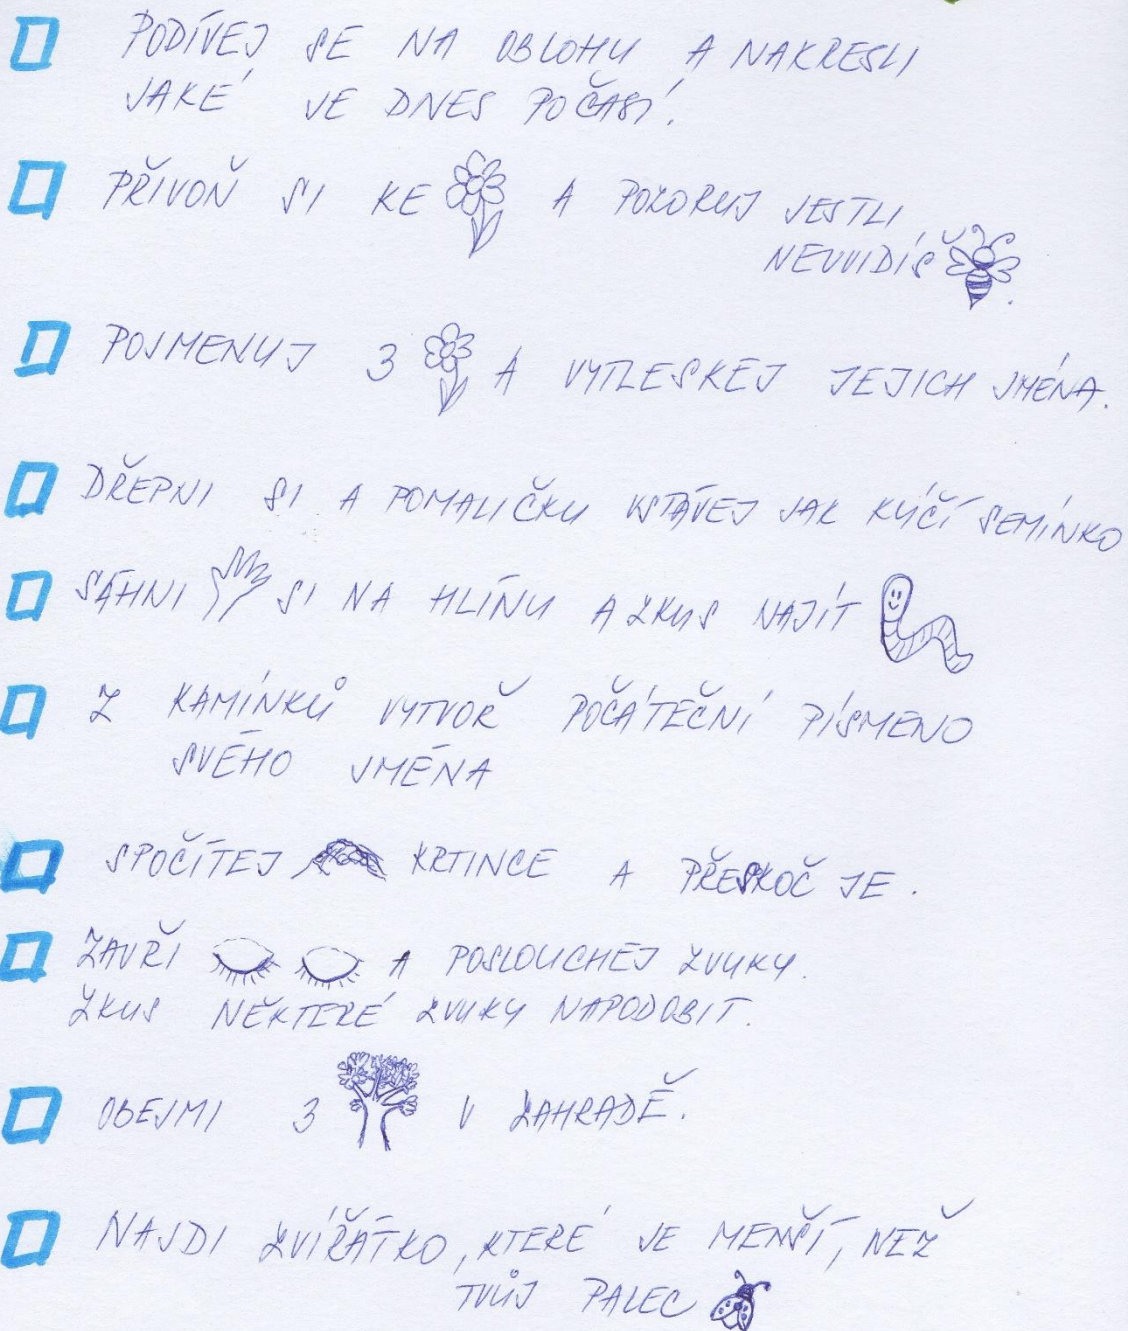 PODÍVEJ SE NA OBLOHU A NAKRESLI
JAKÉ JE DNES POČASÍ.
PŘIVOŇ SI KE A POZORUJ JESTLI
NEUVIDÍŠ .
POJMENUJ 3 A VYTLESKEJ JEJICH JMÉNA.
DŘEPNI SI A POMALIČKU VSTÁVEJ JAK KLÍČÍ SEMÍNKO
SÁHNI SI NA HLÍNU A ZKUS NAJÍT
Z KAMÍNKŮ VYTVOŘ POČÁTEČNÍ PÍSMENO
SVÉHO JMÉNA
SPOČÍTEJ KRTINCE A PŘESKOČ JE.
ZAVŘI A POSLOUCHEJ ZVUKY.
ZKUS NĚKTERÉ ZVUKY NAPODOBIT.
OBEJMI 3 V ZAHRADĚ.
NAJDI ZVÍŘÁTKO, KTERÉ JE MENŠÍ, NEŽ
TVŮJ PALEC